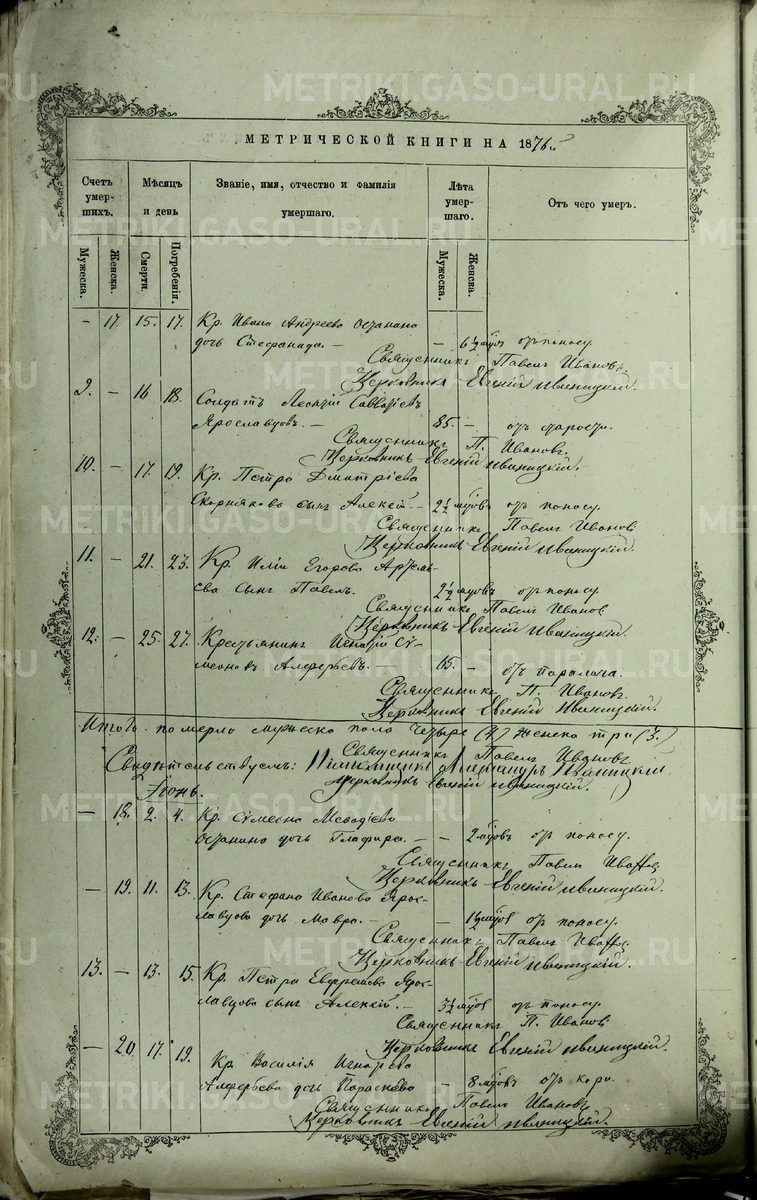 МЕТРИЧЕСКОЙ КНИГИ НА 1876 г.
Счетъ умер-шихъ.
Мѣсяцъ и день
Званіе, имя, отчество и фамилія умершаго.
Лѣта умер-шаго.
Отъ чего умеръ.
Мужеска. Женска. Смерти. Погребенія. Мужеска. Женска.
— 17. 15. 17. Кр. Ивана Андреева Останина
дочь Стефанида. — — 6½ мцов отъ поносу.
Священникъ Павелъ Ивановъ.
Церковникъ Евгеній Иваницкій.
9. — 16 18. Солдатъ Леонтій Савватіевъ
Ярославцовъ. — 85. — отъ старости.
Священникъ П. Ивановъ.
Церковникъ Евгеній Иваницкій.
10. — 17. 19. Кр. Петра Дмитріева
Скорнякова сынъ Алексѣй. — 2½ мцовъ отъ поносу.
Священникъ Павелъ Ивановъ
Церковникъ Евгеній Иваницкій.
11. — 21. 23. Кр. Иліи Егорова Артемь-
ева сынъ Павелъ. 2½ мцовъ отъ поносу.
Священникъ Павелъ Ивановъ
Церковникъ Евгеній Иваницкій.
12. — 25. 27. Крестьянинъ Игнатій Сѵ-
меоновъ Алферьевъ. — 65. — отъ паралича.
Священникъ П. Ивановъ.
Церковникъ Евгеній Иваницкій.
Итого померло мужеска пола четыре (4) женска три (3.)
Священникъ Павелъ Ивановъ
Свидѣтельствуемъ: Иваницкій
Церковникъ Евгеній Иваницкій.
Іюнь.
— 18. 2. 4. Кр. Сѵмеона Меѳодіева
Останина дочь Глафира. — — 2 мцовъ отъ поносу.
Священникъ Павелъ Ивановъ
Церковникъ Евгеній Иваницкій.
— 19. 11. 13. Кр. Стефана Иванова Ярос-
лавцова дочь Мавра. — 1½ мцов отъ поносу.
Священникъ Павелъ Ивановъ.
Церковникъ Евгеній Иваницкій.
13. — 13. 15. Кр. Петра Евфремова Яро-
славцова сынъ Алексѣй. — 3½ мцов отъ поносу.
Священникъ П. Ивановъ
Церковникъ Евгеній Иваницкій.
— 20. 17. 19. Кр. Василія Игнатьева
Алферьева дочь Параскева — 8 мцовъ отъ кори.
Священникъ Павелъ Ивановъ
Церковникъ Евгеній Иваницкій.
METRIKI.GASO-URAL.RU